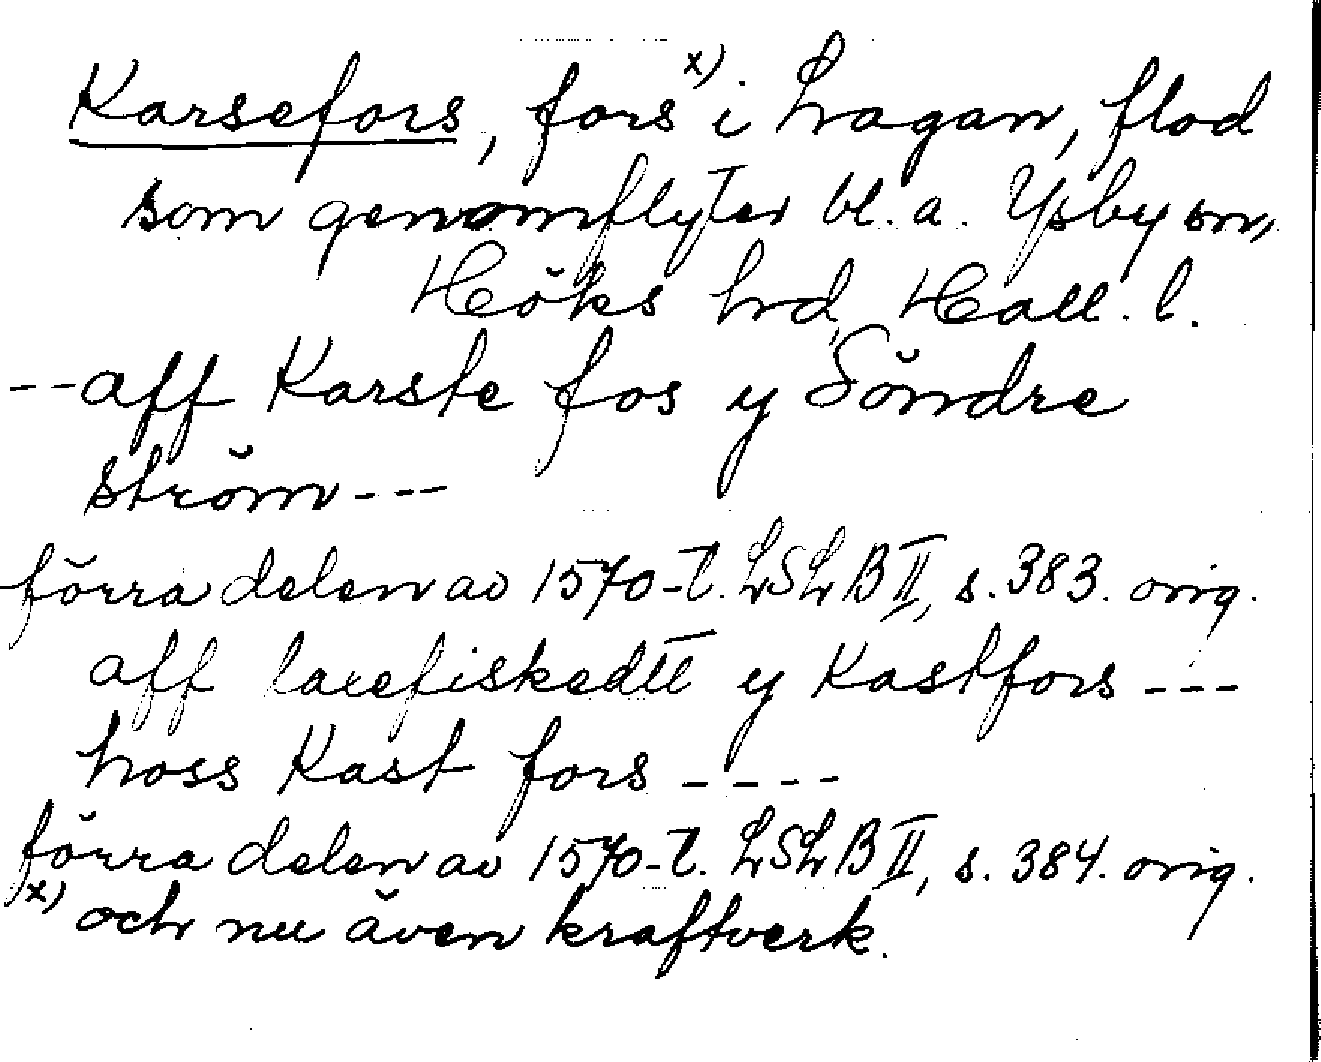 Karsefors, fors x) i Lagan, flod
som genomflyter bl. a. Ysby sn,
Höks hrd, Hall. l.
-- aff Karste fos y Söndre
ström ---
förra delen av 1570-t. LSLB II, s. 383. orig.
aff laxefiskedtt y Kastfors ---
hoss Kast fors ----
förra delen av 1570-t. LSLB II, s. 384. orig.
x) och nu även kraftverk.